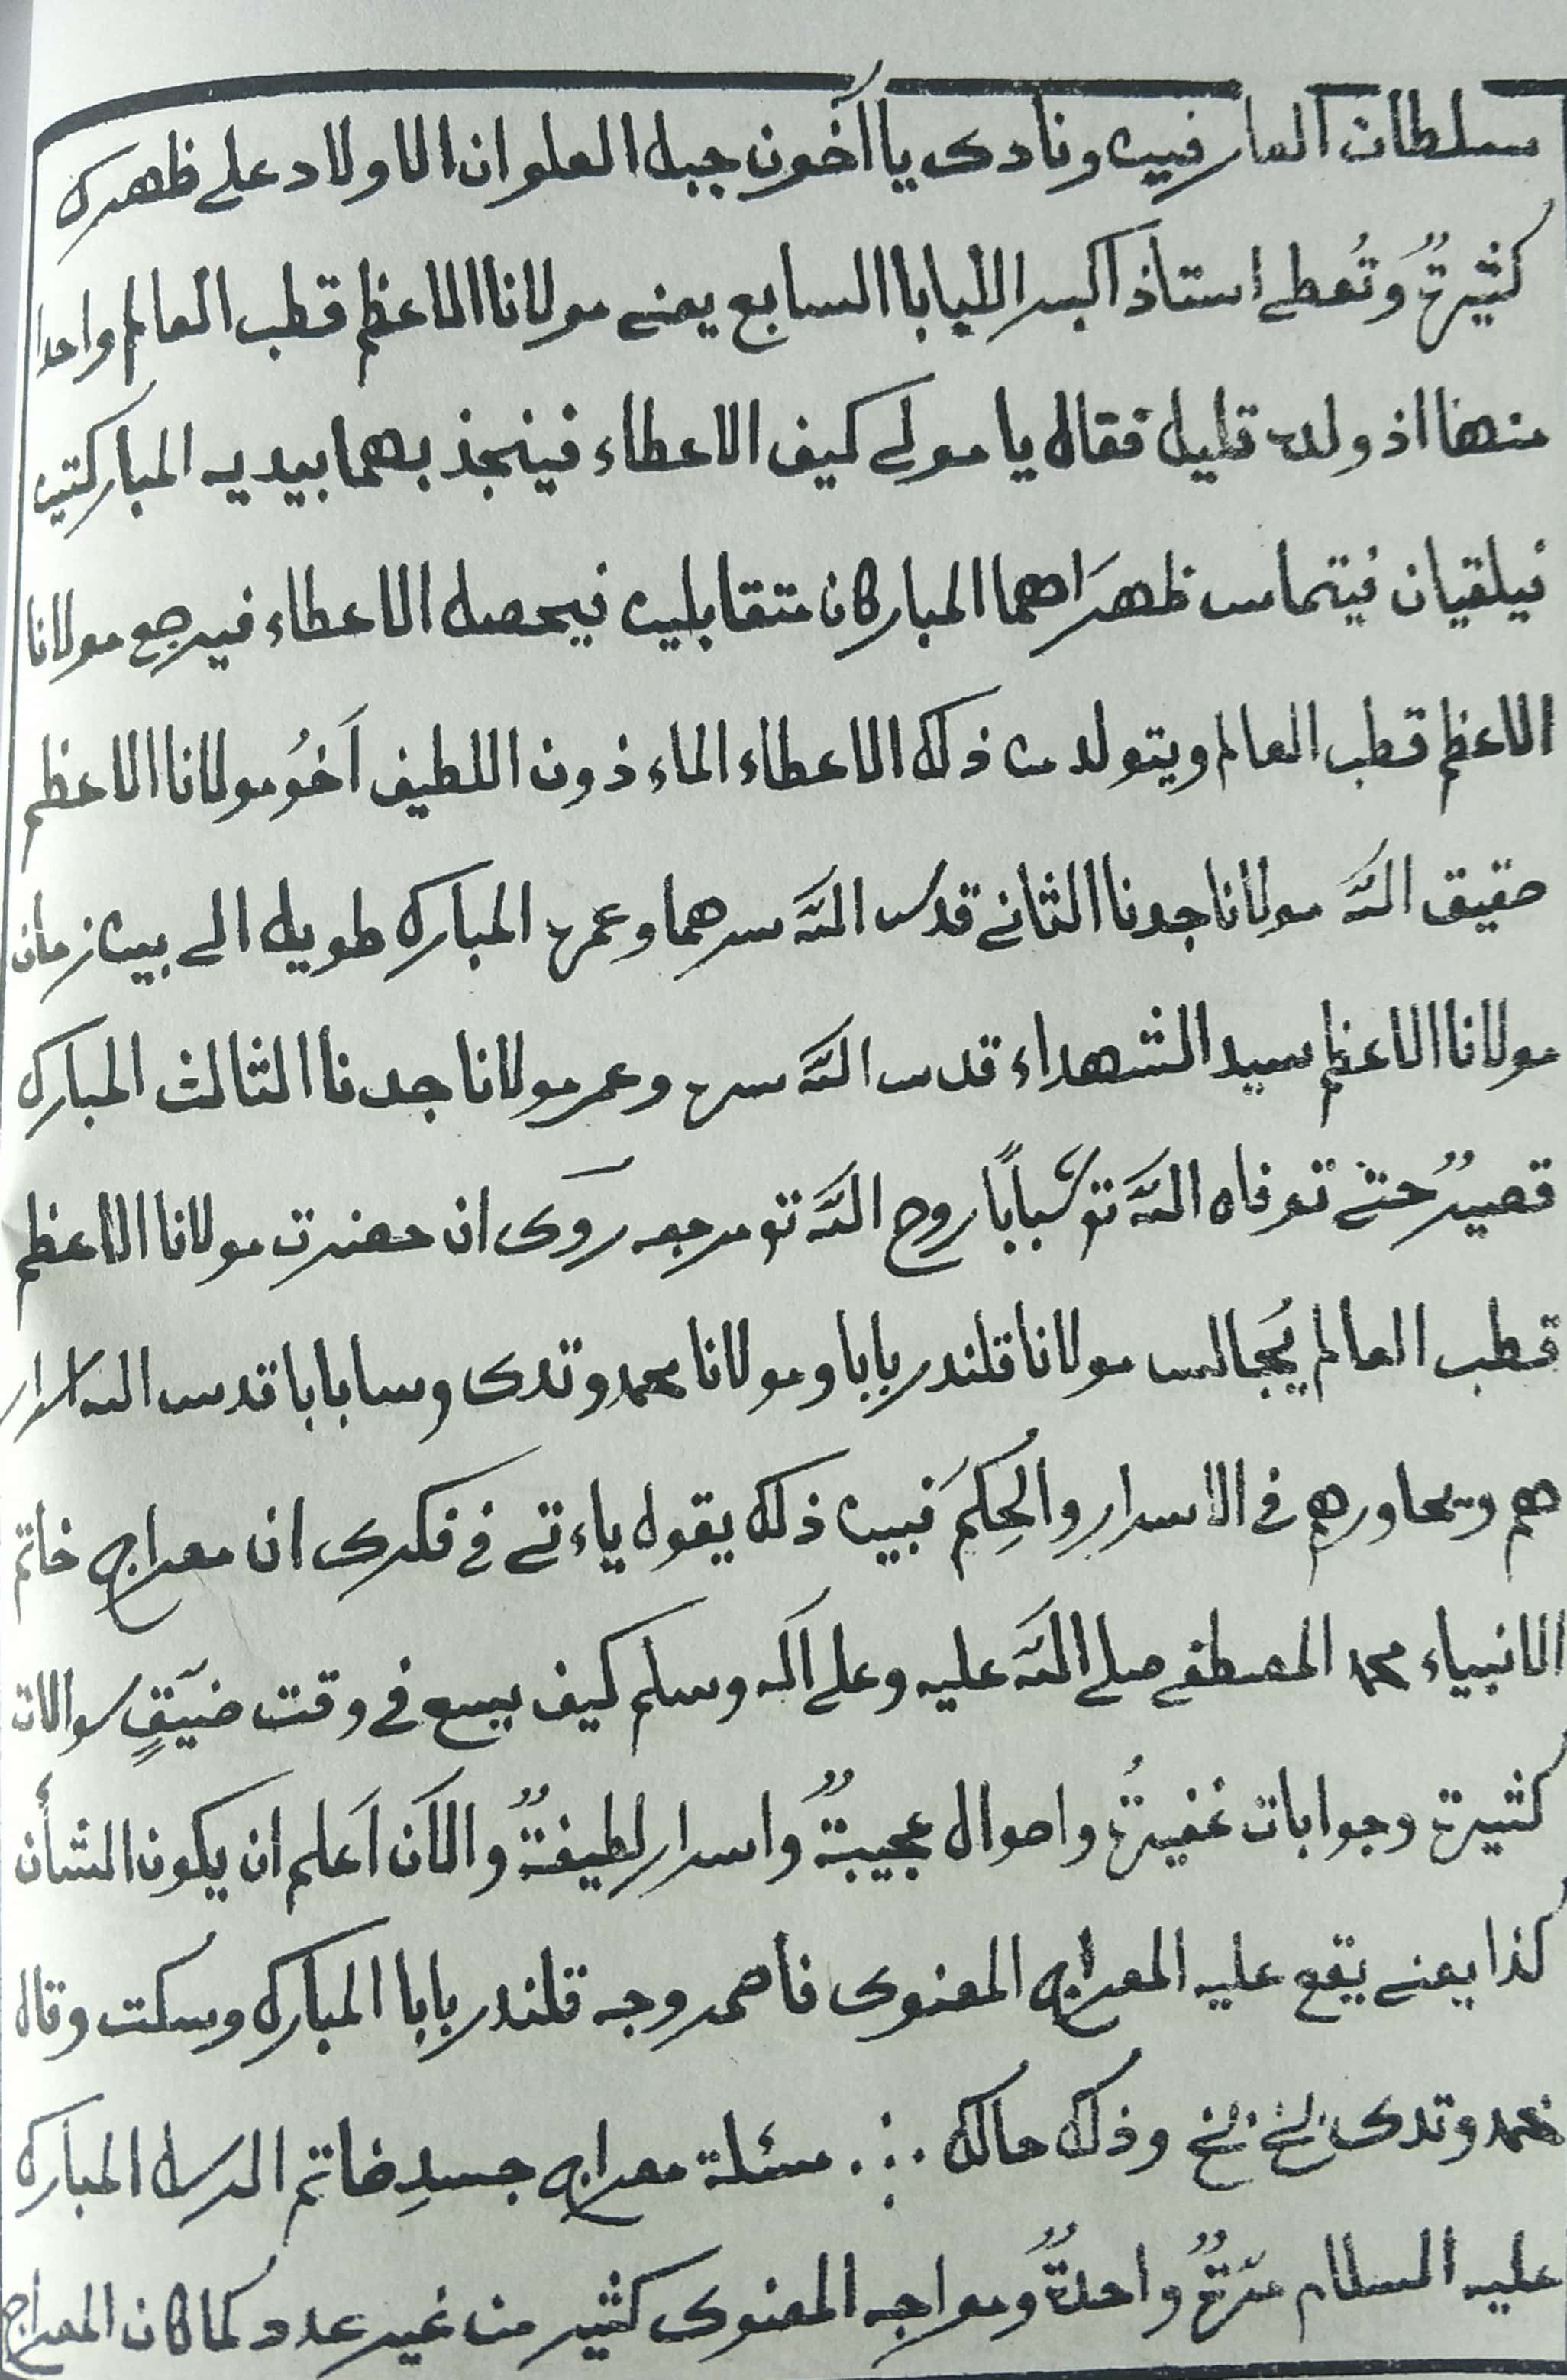 سلطان العارفين ونادى يا آخون جبل العلو ان الاولاد على ظهرك
كثيرةٌ وَتُعطى استاذ اكسر اللبابا السابع يعنى مولانا الاعظم قطب العالم واحدا
منها اذ ولده قليل فقال يا مولى كيف الاعطاء فينجذ بهما بيديه المباركتين
فيلقيان فيتماس ظهرَاهما المباركان متقابلين فيحصل الاعطاء فيرجع مولانا
الاعظم قطب العالم ويتولد من ذلك الاعطاء الماء ذون اللطيف اَخُو مولانا الاعظم
حقيق اللّه مولانا جدنا الثانى قدس اللّه سرهما وعمره المبارك طويل الى بين زمان
مولانا الاعظم سيد الشهداء قدس اللّه سره وعمر مولانا جدنا الثالث المبارك
قصيرٌ حتى توفاه اللّه تو شباباً روح اللّه تو مرجعه روى ان حضرت مولانا الاعظم
قطب العالم يُجالس مولانا قلندر بابا ومولانا محمد وتدى وسابابا قدس الله اسرار
هم ويحاورهم فى الاسرار والحِكَم فبين ذلك يقول ياءتى فى فكرى ان معراج خاتم
الانبياء محمد المصطفى صلى اللّه عليه وعلى آله وسلم كيف يسع فى وقت ضيّقٍ سوالات
كثيرة وجوابات غفيرةُ واحوال عجيبةٌ واسرار لطيفةٌ والآن اَعلم ان يكون الشأن
كذا يعنى يقع عليه المعراج المعنوى فأحمر وجه قلندر بابا المبارك وسكت وقال
محمد وتدى نخ نخ وذلك حالك ∴ مسئلة معراج جسدِ خاتم الرسل المبارك
عليه السلام مرّةٌ واحدةٌ ومعراجه المعنوى كثير من غير عدد كما كان المعراج